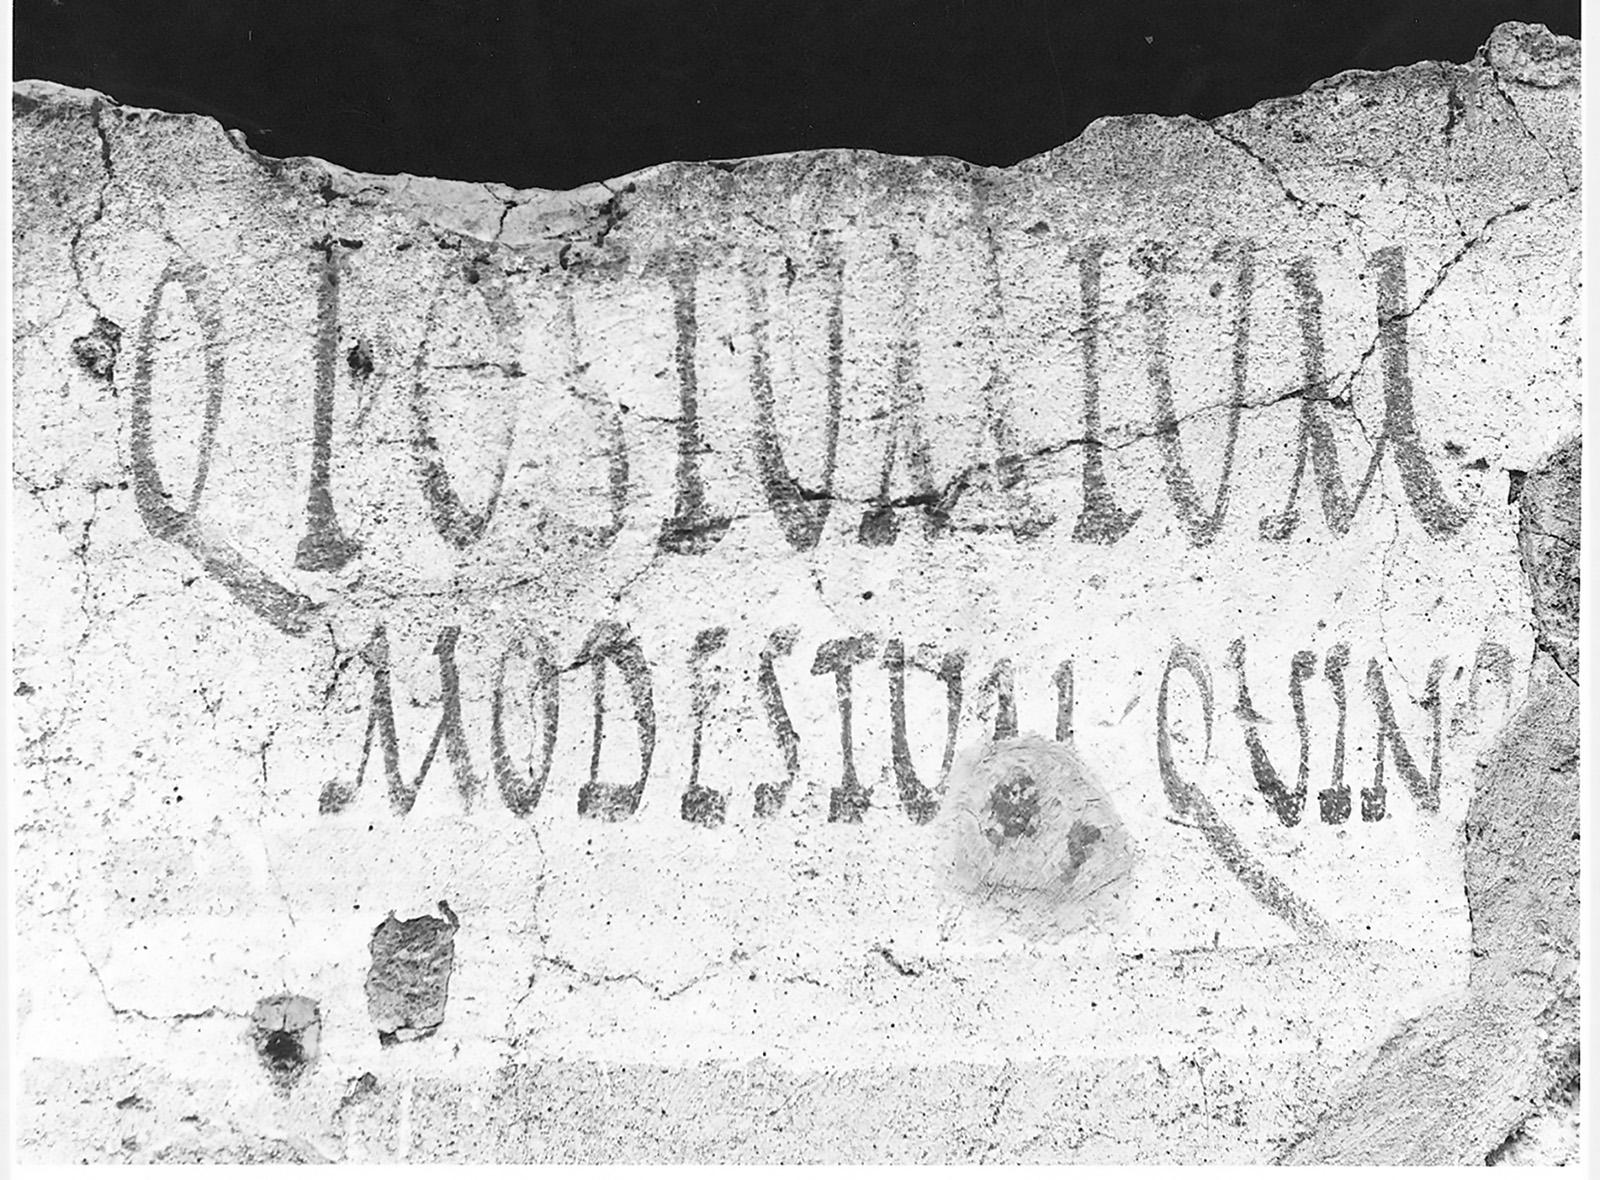 Q POSTVMIVM
MODESTVM QVINQ